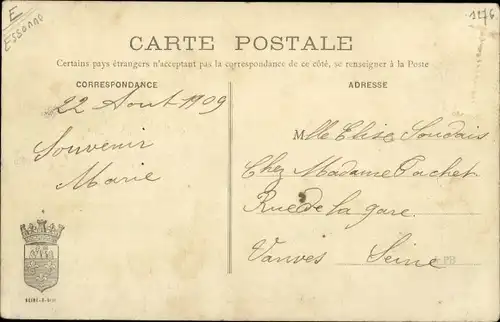 E
ESSONNE
1276
CARTE POSTALE
Certains pays étrangers n'acceptant pas la correspondance de ce côté, se renseigner à la Poste
CORRESPONDANCE
22 Aout 1909
Souvenir
Marie
ADRESSE
Mlle Elise Soudais
Chez Madame Pachet
Rue de la gare
Vanves Seine